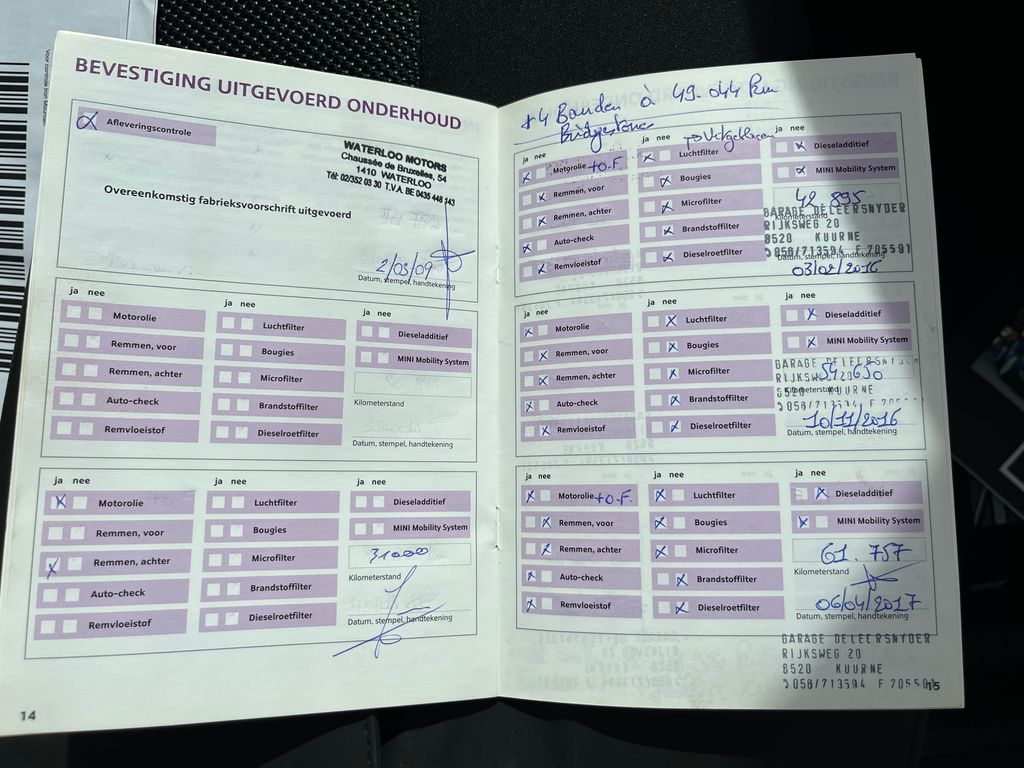 BEVESTIGING UITGEVOERD ONDERHOUD
Afleveringscontrole
WATERLOO MOTORS
Chaussée de Bruxelles, 54
1410 WATERLOO
Tél: 02/352 03 30 T.V.A. BE 0435 448 143
Overeenkomstig fabrieksvoorschrift uitgevoerd
2/03/09
Datum, stempel, handtekening
ja nee
ja nee
ja nee
Motorolie
Luchtfilter
Dieseladditief
Remmen, voor
Bougies
MINI Mobility System
Remmen, achter
Microfilter
Auto-check
Brandstoffilter
Kilometerstand
Remvloeistof
Dieselroetfilter
Datum, stempel, handtekening
ja nee
ja nee
ja nee
Motorolie
Luchtfilter
Dieseladditief
Remmen, voor
Bougies
MINI Mobility System
31000
Remmen, achter
Microfilter
Kilometerstand
Auto-check
Brandstoffilter
Remvloeistof
Dieselroetfilter
Datum, stempel, handtekening
14
+4 Banden à 49.044 km
Bridgestone
ja nee
ja nee
ja nee
Motorolie +O.F.
Luchtfilter
Dieseladditief
Remmen, voor
Bougies
MINI Mobility System
48 895
Remmen, achter
Microfilter
Kilometerstand
GARAGE DELEERSNYDER
RIJKSWEG 20
8520 KUURNE
056/713594 F 705591
Auto-check
Brandstoffilter
Remvloeistof
Dieselroetfilter
Datum, stempel, handtekening
03/02/2016
ja nee
ja nee
ja nee
Motorolie
Luchtfilter
Dieseladditief
Remmen, voor
Bougies
MINI Mobility System
Remmen, achter
Microfilter
GARAGE DELEERSNYDER
RIJKSWEG 20
54 650
Kilometerstand
8520 KUURNE
056/713594 F 7055
Auto-check
Brandstoffilter
10/11/2016
Remvloeistof
Dieselroetfilter
Datum, stempel, handtekening
ja nee
ja nee
ja nee
Motorolie +O.F.
Luchtfilter
Dieseladditief
Remmen, voor
Bougies
MINI Mobility System
61.757
Remmen, achter
Microfilter
Kilometerstand
Auto-check
Brandstoffilter
06/04/2017
Remvloeistof
Dieselroetfilter
Datum, stempel, handtekening
GARAGE DELEERSNYDER
RIJKSWEG 20
8520 KUURNE
056/713594 F 705591
15